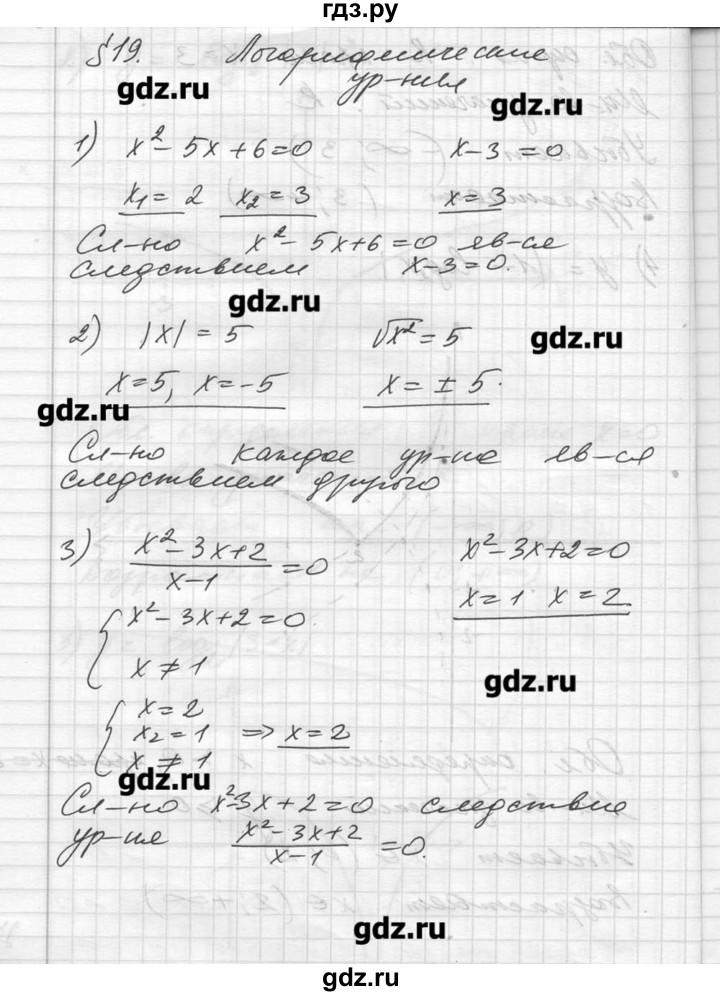 гдз.ру
§19. Логарифмические
ур-ния
gdz.ru
gdz.ru
1) x² - 5x + 6 = 0    x - 3 = 0
x₁ = 2  x₂ = 3    x = 3
Сл-но x² - 5x + 6 = 0 яв-ся
следствием x - 3 = 0.
gdz.ru
2) |x| = 5    √x² = 5
gdz.ru
x = 5, x = -5    x = ± 5.
gdz.ru
Сл-но каждое ур-ие яв-ся
следствием другого
3) (x² - 3x + 2)/(x - 1) = 0    x² - 3x + 2 = 0
{ x² - 3x + 2 = 0.    x = 1  x = 2.
x ≠ 1
gdz.ru
{ x = 2
x₂ = 1  => x = 2
x ≠ 1
gdz.ru
Сл-но x² - 3x + 2 = 0 следствие
ур-ия (x² - 3x + 2)/(x - 1) = 0.
gdz.ru
gdz.ru